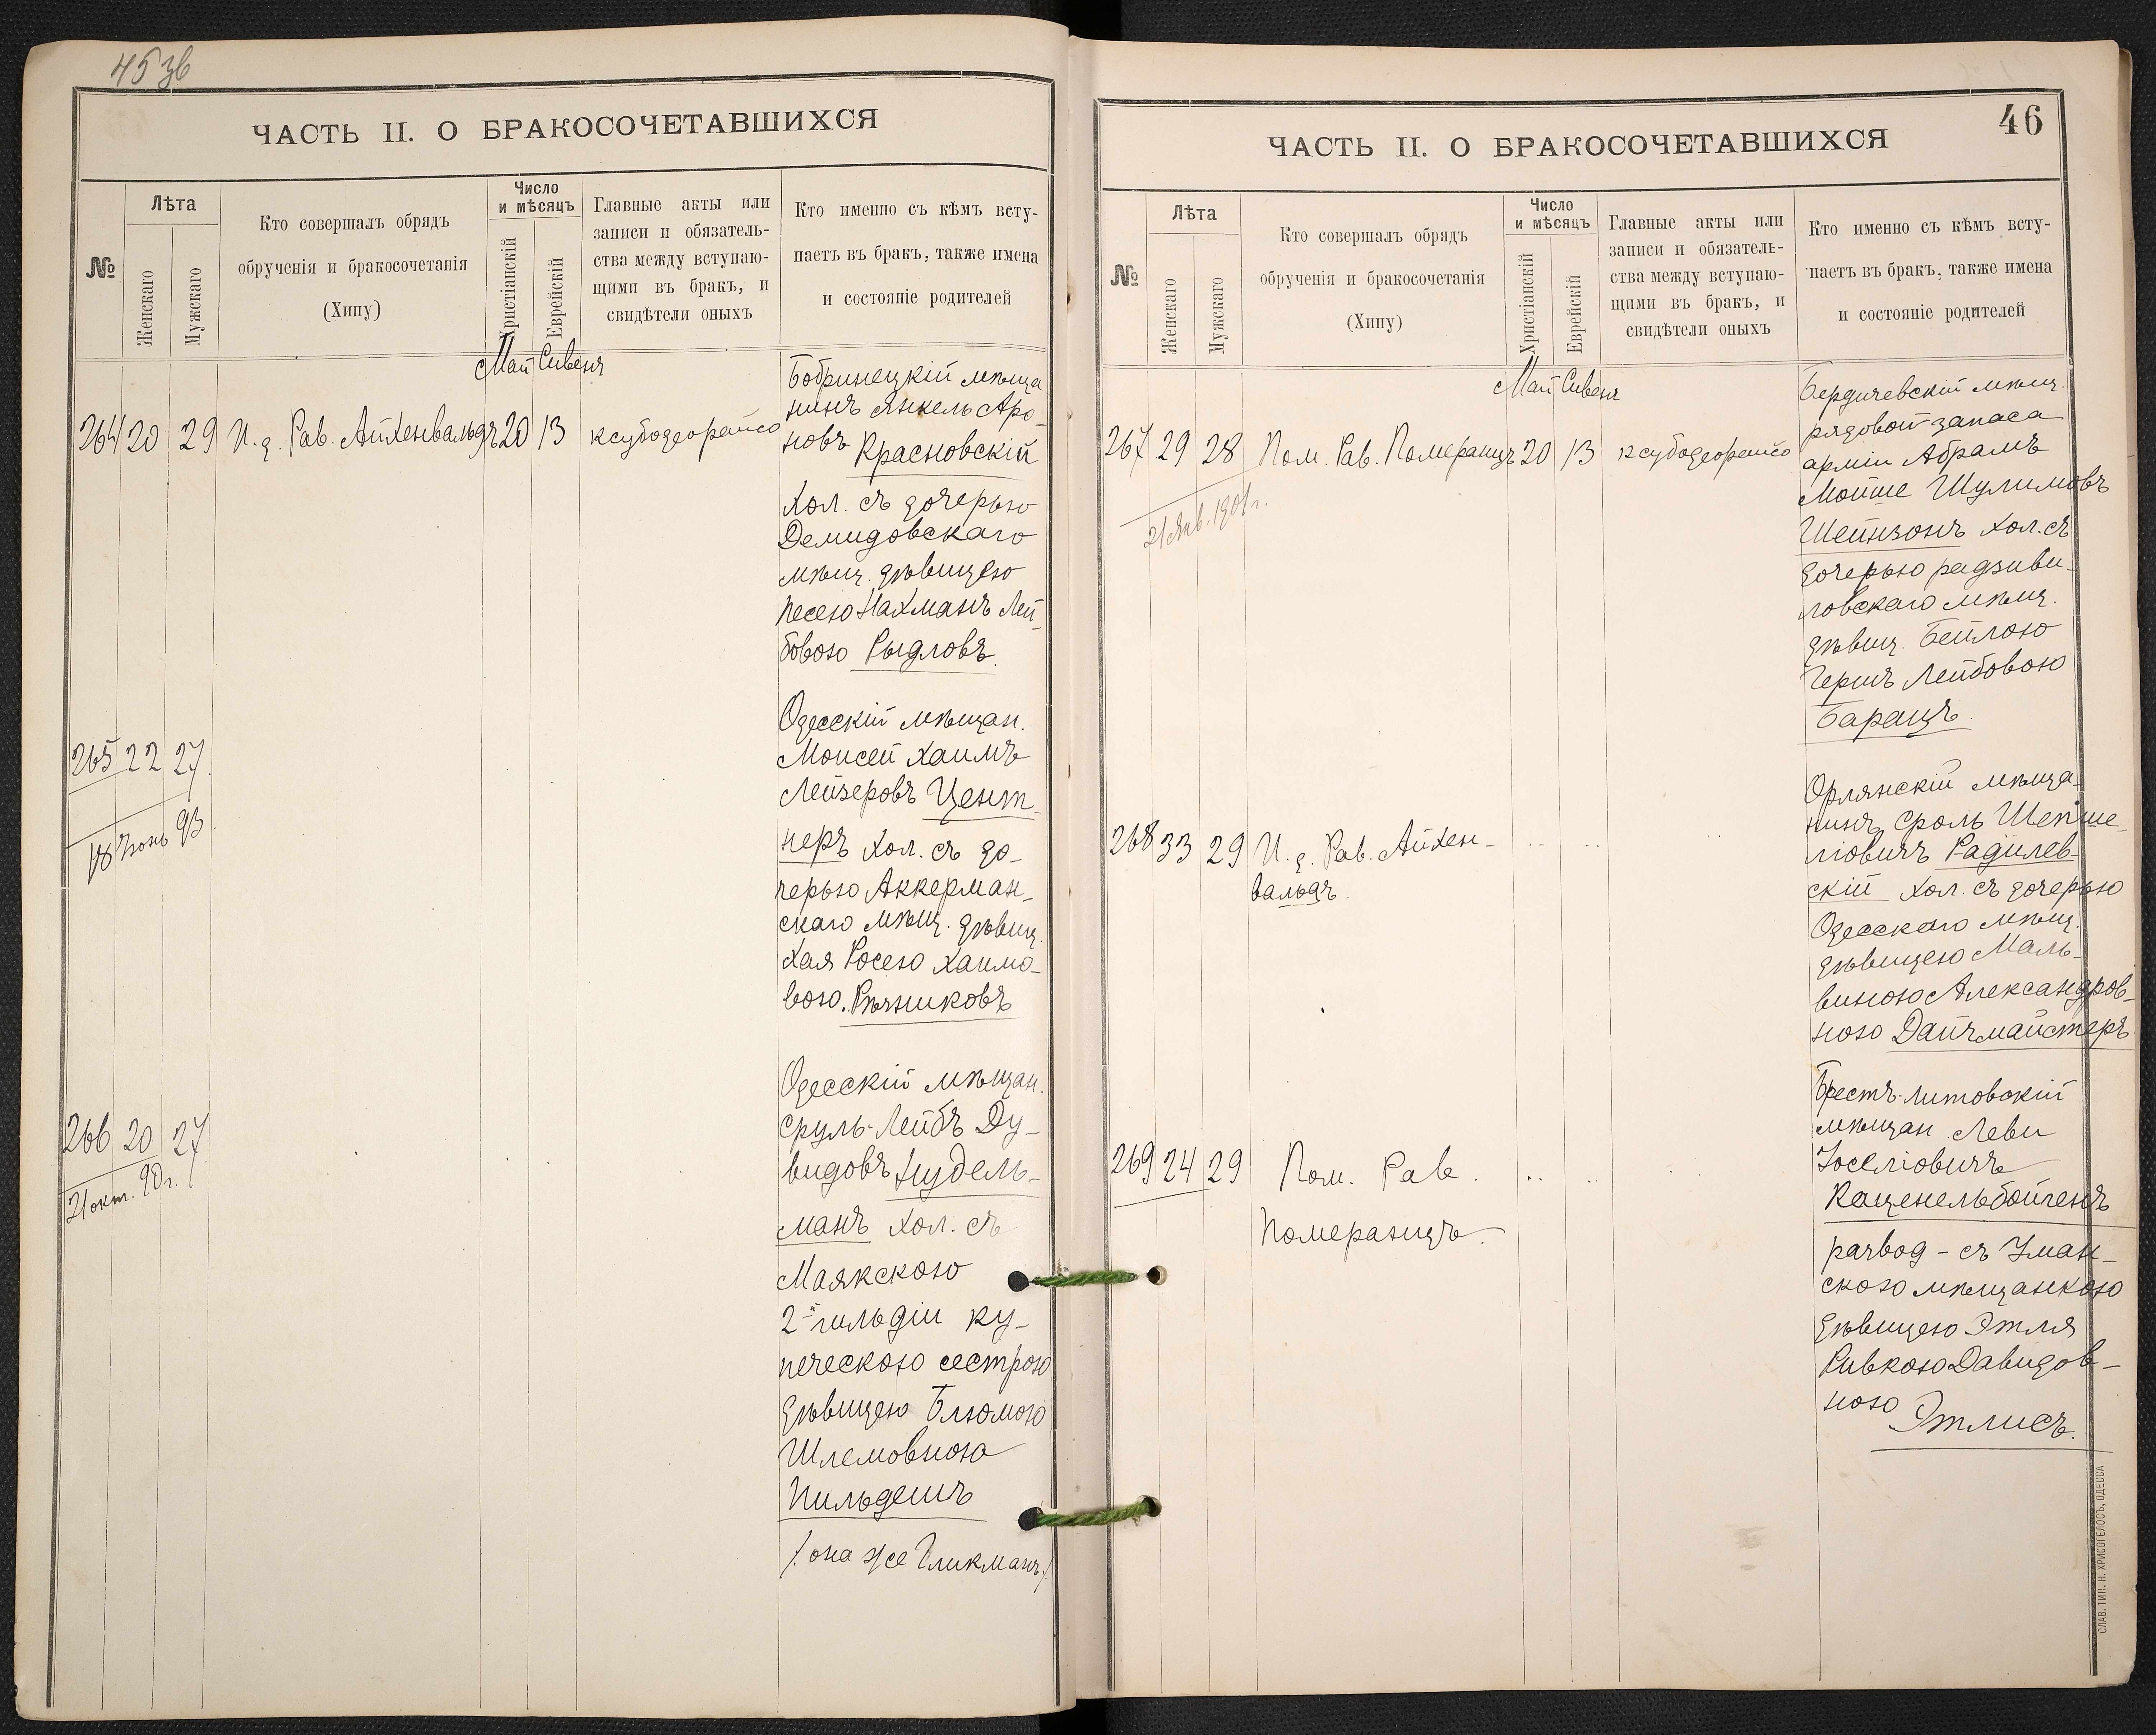 45 зв
ЧАСТЬ II. О БРАКОСОЧЕТАВШИХСЯ
№
Лѣта
Женскаго
Мужскаго
Кто совершалъ обрядъ
обрученія и бракосочетанія
(Хипу)
Число
и мѣсяцъ
Христіанскій
Еврейскій
Главные акты или
записи и обязатель-
ства между вступаю-
щими въ бракъ, и
свидѣтели оныхъ
Кто именно съ кѣмъ всту-
паетъ въ бракъ, также имена
и состояніе родителей
Май Сивенъ
264 20 29 И. д. Рав. Айхенвальдъ 20 13 ксубодеорайсо
Бобринецкій мѣща
нинъ Янкель Аро-
новъ Красновскій
хол. съ дочерью
Демидовскаго
мѣщ. дѣвицею
Песею Нахманъ Лей-
бовою Рыдловъ.
265 22 27
18 Іюнь 93
Одесскій мѣщан.
Моисей Хаимъ
Лейзеровъ Цент-
неръ хол. съ до-
черью Аккерман-
скаго мѣщ. дѣвиц.
Хая Росею Хаимо-
вою. Рѣзниковъ
266 20 27
21 окт. 90 г.
Одесскій мѣщан.
Сруль-Лейбъ Ду-
видовъ Нудель-
манъ хол. съ
Маякскою
2й гильдіи ку-
печескою сестрою
дѣвицею Блюмою
Шлемовною
Пильдешъ
/: она же Гликманъ :/
46
ЧАСТЬ II. О БРАКОСОЧЕТАВШИХСЯ
№
Лѣта
Женскаго
Мужскаго
Кто совершалъ обрядъ
обрученія и бракосочетанія
(Хипу)
Число
и мѣсяцъ
Христіанскій
Еврейскій
Главные акты или
записи и обязатель-
ства между вступаю-
щими въ бракъ, и
свидѣтели оныхъ
Кто именно съ кѣмъ всту-
паетъ въ бракъ, также имена
и состояніе родителей
Май Сивенъ
267 29 28 Пом. Рав. Померанцъ 20 13 ксубодеорайсо
21 Янв. 1901 г.
Бердичевскій мѣщ.
рядовой запаса
арміи Абрамъ
Мойше Шулимовъ
Шейнзонъ хол. съ
дочерью радзиви-
ловскаго мѣщ.
дѣвиц. Бейлою
Гершъ Лейбовою
Баранцъ.
268 33 29 И. д. Рав. Айхен-
вальдъ.
Орлянскій мѣща-
нинъ Сроль Шепше-
ліовичъ Радилев-
скій хол. съ дочерью
Одесскаго мѣщ.
дѣвицею Маль-
виною Александров-
ною Дайчмайстеръ
269 24 29 Пом. Рав.
Померанцъ.
Брестъ-Литовскій
мѣщан. Леви
Іоселіовичъ
Каценельбойгенъ
развод - съ Уман-
скою мѣщанкою
дѣвицею Этля
Ривкою Давидов-
ною Этлисъ.
СЛАВ. ТИП. Н. ХРИСОГЕЛОСЪ, ОДЕССА